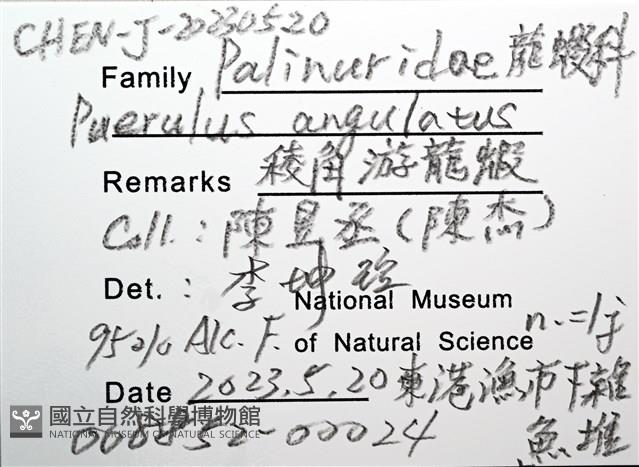 CHEN-J-20230520
Family Palinuridae 龍蝦科
Puerulus angulatus
Remarks 稜角游龍蝦
Coll.: 陳昱丞(陳杰)
Det.: 李坤瑄
National Museum
95% Alc. F. of Natural Science n.=1j
Date 2023.5.20 東港漁市下雜
魚堆
00024
國立自然科學博物館
NATIONAL MUSEUM OF NATURAL SCIENCE